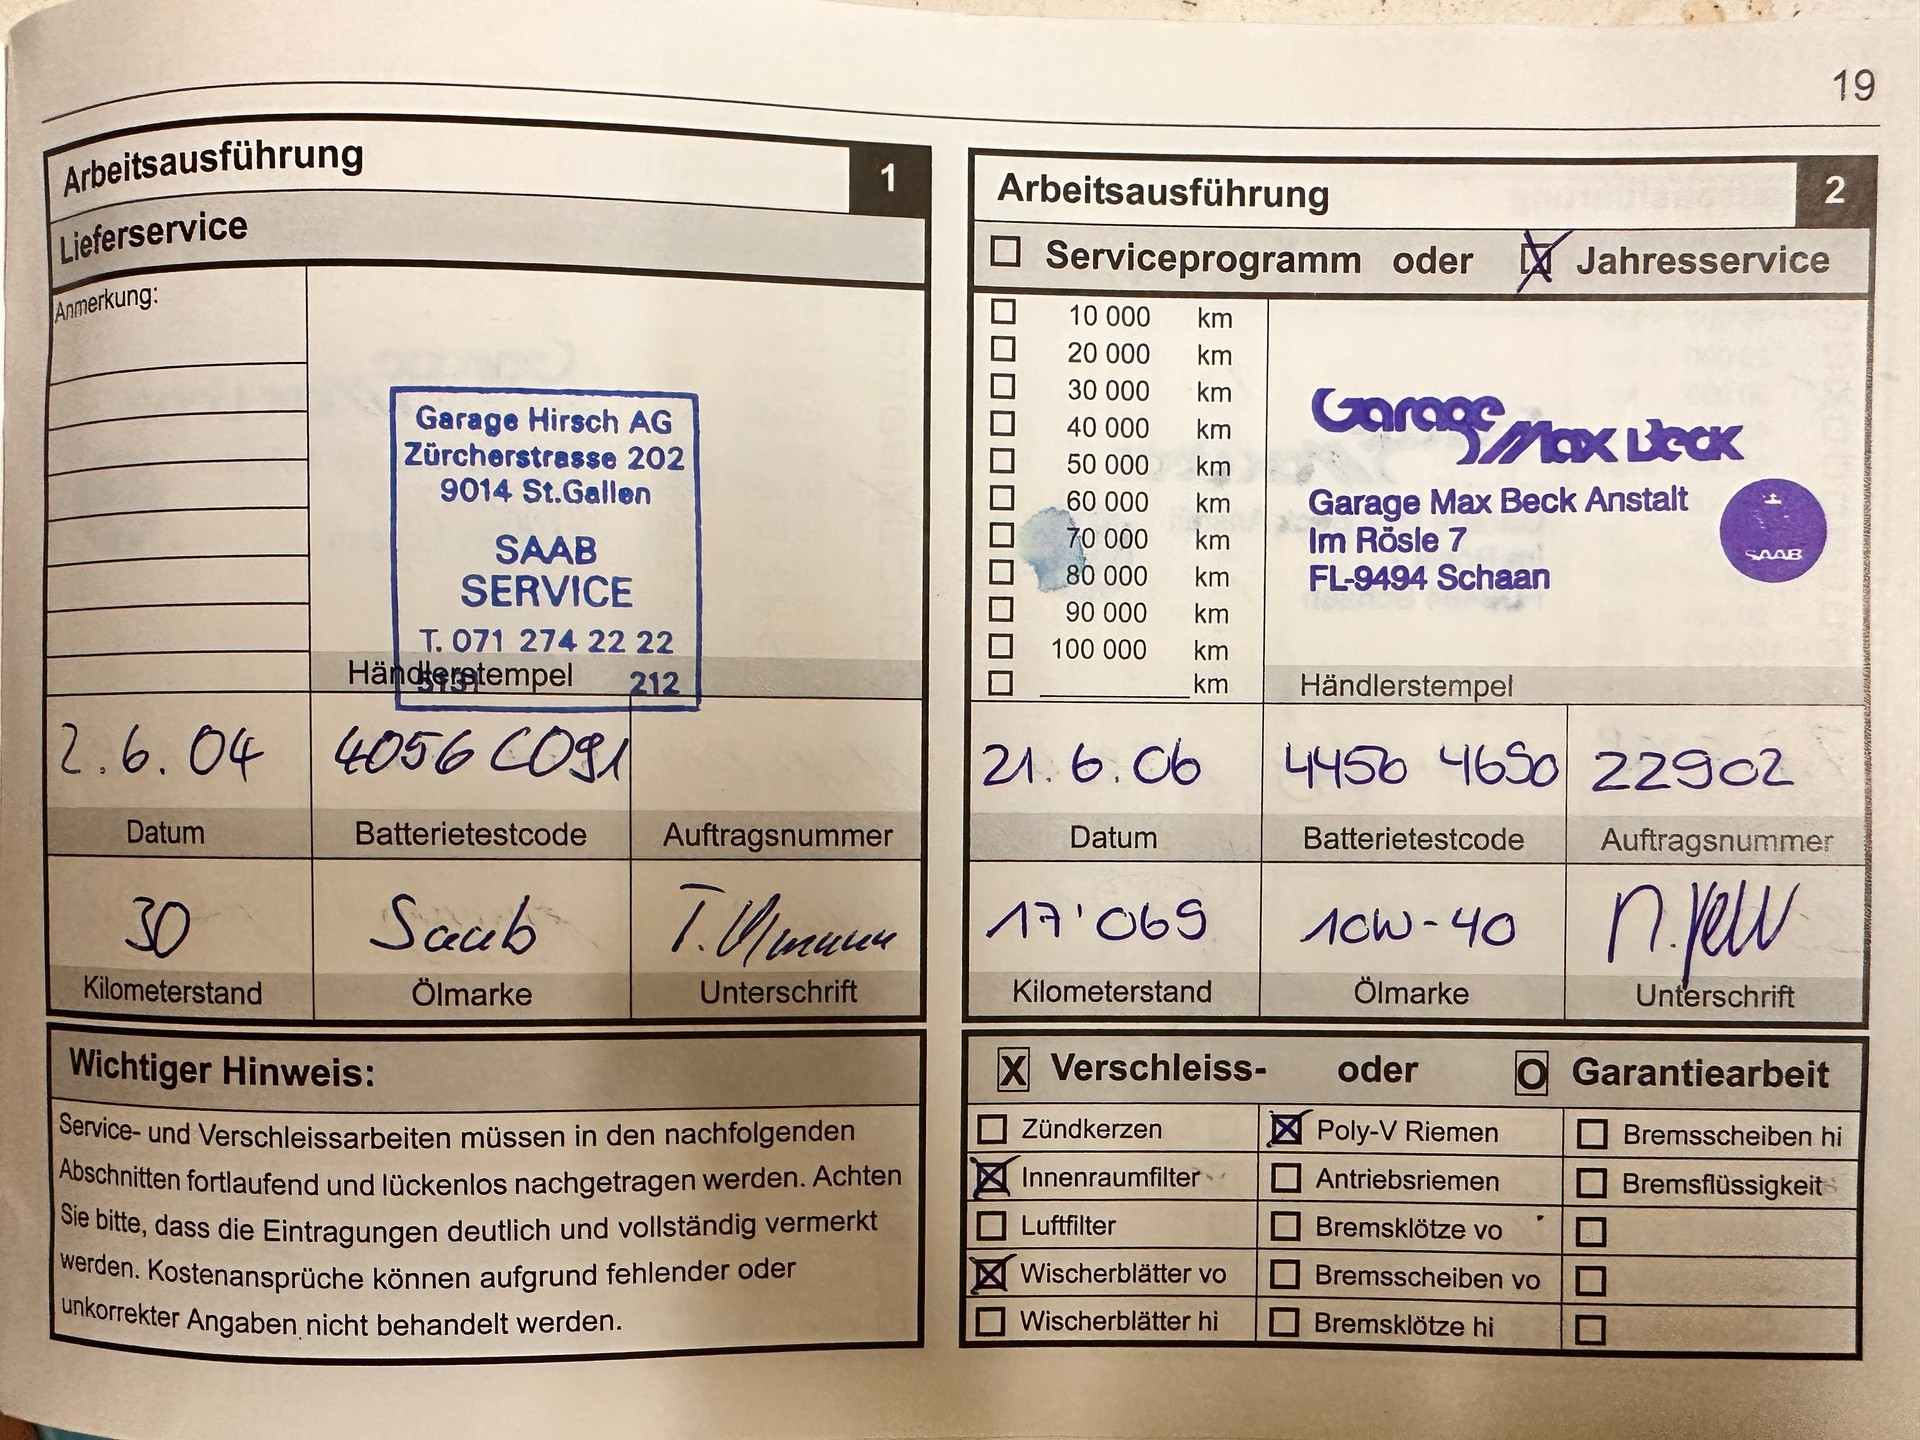 19
Arbeitsausführung 1
Lieferservice
Anmerkung:
Garage Hirsch AG
Zürcherstrasse 202
9014 St.Gallen
SAAB
SERVICE
T. 071 274 22 22
212
Händlerstempel
2.6.04 4056 C091
Datum Batterietestcode Auftragsnummer
30 Saab
Kilometerstand Ölmarke Unterschrift
Wichtiger Hinweis:
Service- und Verschleissarbeiten müssen in den nachfolgenden
Abschnitten fortlaufend und lückenlos nachgetragen werden. Achten
Sie bitte, dass die Eintragungen deutlich und vollständig vermerkt
werden. Kostenansprüche können aufgrund fehlender oder
unkorrekter Angaben nicht behandelt werden.
Arbeitsausführung 2
Serviceprogramm oder Jahresservice
10 000 km
20 000 km
30 000 km
40 000 km
50 000 km
60 000 km
70 000 km
80 000 km
90 000 km
100 000 km
km
Garage Max Beck
Garage Max Beck Anstalt
Im Rösle 7
FL-9494 Schaan
SAAB
Händlerstempel
21.6.06 22902
Datum Batterietestcode Auftragsnummer
17'069 10W-40
Kilometerstand Ölmarke Unterschrift
X Verschleiss- oder O Garantiearbeit
Zündkerzen Poly-V Riemen Bremsscheiben hi
Innenraumfilter Antriebsriemen Bremsflüssigkeit
Luftfilter Bremsklötze vo
Wischerblätter vo Bremsscheiben vo
Wischerblätter hi Bremsklötze hi